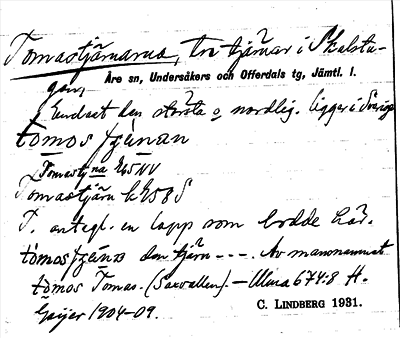 Tomastjärnarna, tre tjärnar i Skalstu-
gan,
Åre sn, Undersåkers och Offerdals tg, Jämtl. l.
Endast den största o nordlig. ligger i Sverige
tòmos ʃǥænan
Tomastjna Z45NV
Tomastjärn k Z58 S
T. antegl. en lapp som bodde här.
den tjärn --- Av mansnamnet
tòmos Tomas. (Saxvallen). – Ulma 674:8 H.
Geijer 1904-09.
C. LINDBERG 1931.